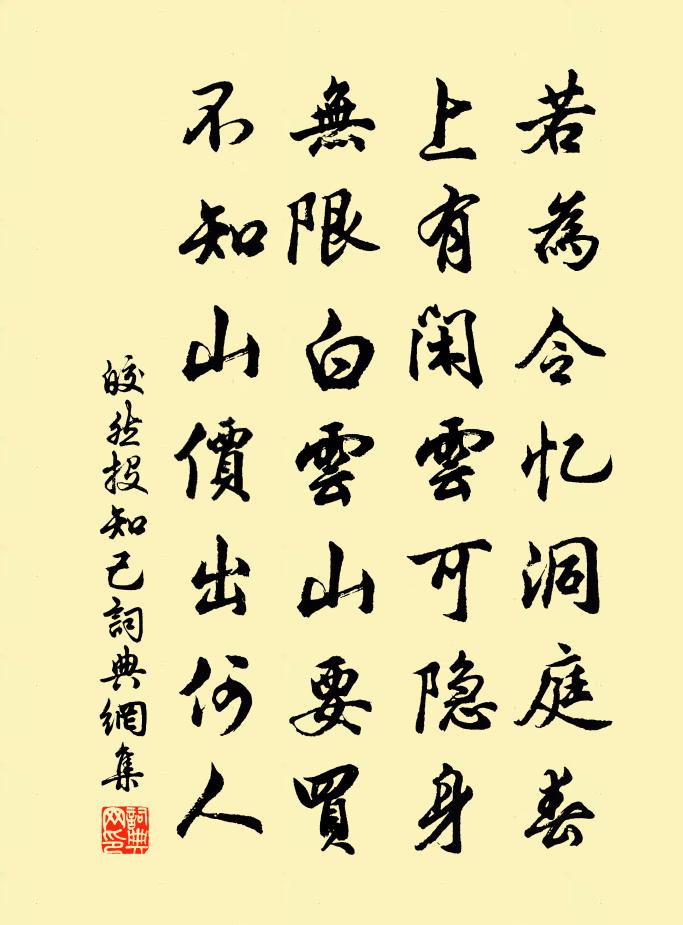 若為令忆洞庭春
上有閑雲可隐身
無限白雲山要買
不知山價出何人
皎然投知己詞典網集
詞典網印